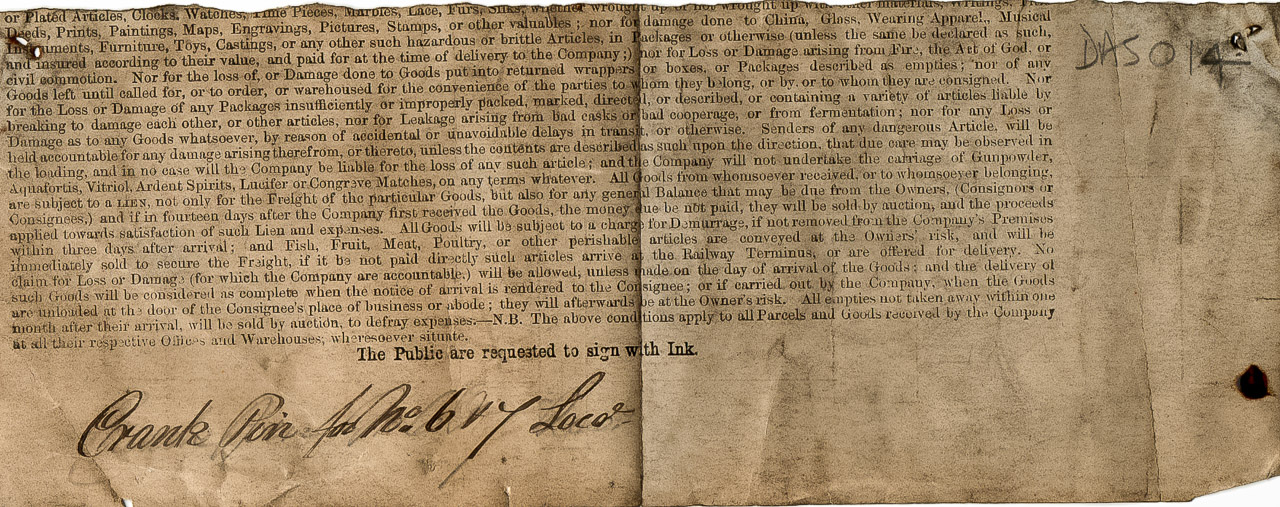 or Plated Articles, Clocks, Watches, Time Pieces, Marbles, Lace, Furs, Silks, whether wrought up or not wrought up with other materials, Writings, Title
Deeds, Prints, Paintings, Maps, Engravings, Pictures, Stamps, or other valuables ; nor for damage done to China, Glass, Wearing Apparel., Musical
Instruments, Furniture, Toys, Castings, or any other such hazardous or brittle Articles, in Packages or otherwise (unless the same be declared as such,
and insured according to their value, and paid for at the time of delivery to the Company ;) nor for Loss or Damage arising from Fire, the Act of God, or
civil commotion. Nor for the loss of, or Damage done to Goods put into returned wrappers or boxes, or Packages described as empties ; nor of any
Goods left until called for, or to order, or warehoused for the convenience of the parties to whom they belong, or by, or to whom they are consigned. Nor
for the Loss or Damage of any Packages insufficiently or improperly packed, marked, directed, or described, or containing a variety of articles liable by
breaking to damage each other, or other articles, nor for Leakage arising from bad casks or bad cooperage, or from fermentation ; nor for any Loss or
Damage as to any Goods whatsoever, by reason of accidental or unavoidable delays in transit, or otherwise. Senders of any dangerous Article, will be
held accountable for any damage arising therefrom, or thereto, unless the contents are described as such upon the direction, that due care may be observed in
the loading, and in no case will the Company be liable for the loss of any such article ; and the Company will not undertake the carriage of Gunpowder,
Aquafortis, Vitriol, Ardent Spirits, Lucifer or Congreve Matches, on any terms whatever. All Goods from whomsoever received, or to whomsoever belonging,
are subject to a LIEN, not only for the Freight of the particular Goods, but also for any general Balance that may be due from the Owners, (Consignors or
Consignees,) and if in fourteen days after the Company first received the Goods, the money due be not paid, they will be sold by auction, and the proceeds
applied towards satisfaction of such Lien and expenses. All Goods will be subject to a charge for Demurrage, if not removed from the Company's Premises
within three days after arrival ; and Fish, Fruit, Meat, Poultry, or other perishable articles are conveyed at the Owners' risk, and will be
immediately sold to secure the Freight, if it be not paid directly such articles arrive at the Railway Terminus, or are offered for delivery. No
claim for Loss or Damage (for which the Company are accountable,) will be allowed, unless made on the day of arrival of the Goods ; and the delivery of
such Goods will be considered as complete when the notice of arrival is rendered to the Consignee ; or if carried out by the Company, when the Goods
are unloaded at the door of the Consignee's place of business or abode ; they will afterwards be at the Owner's risk. All empties not taken away within one
month after their arrival, will be sold by auction, to defray expenses.—N.B. The above conditions apply to all Parcels and Goods received by the Company
at all their respective Offices and Warehouses, wheresoever situate.
The Public are requested to sign with Ink.
Crank Pin for No. 6 & 7 Loco
DAS 014